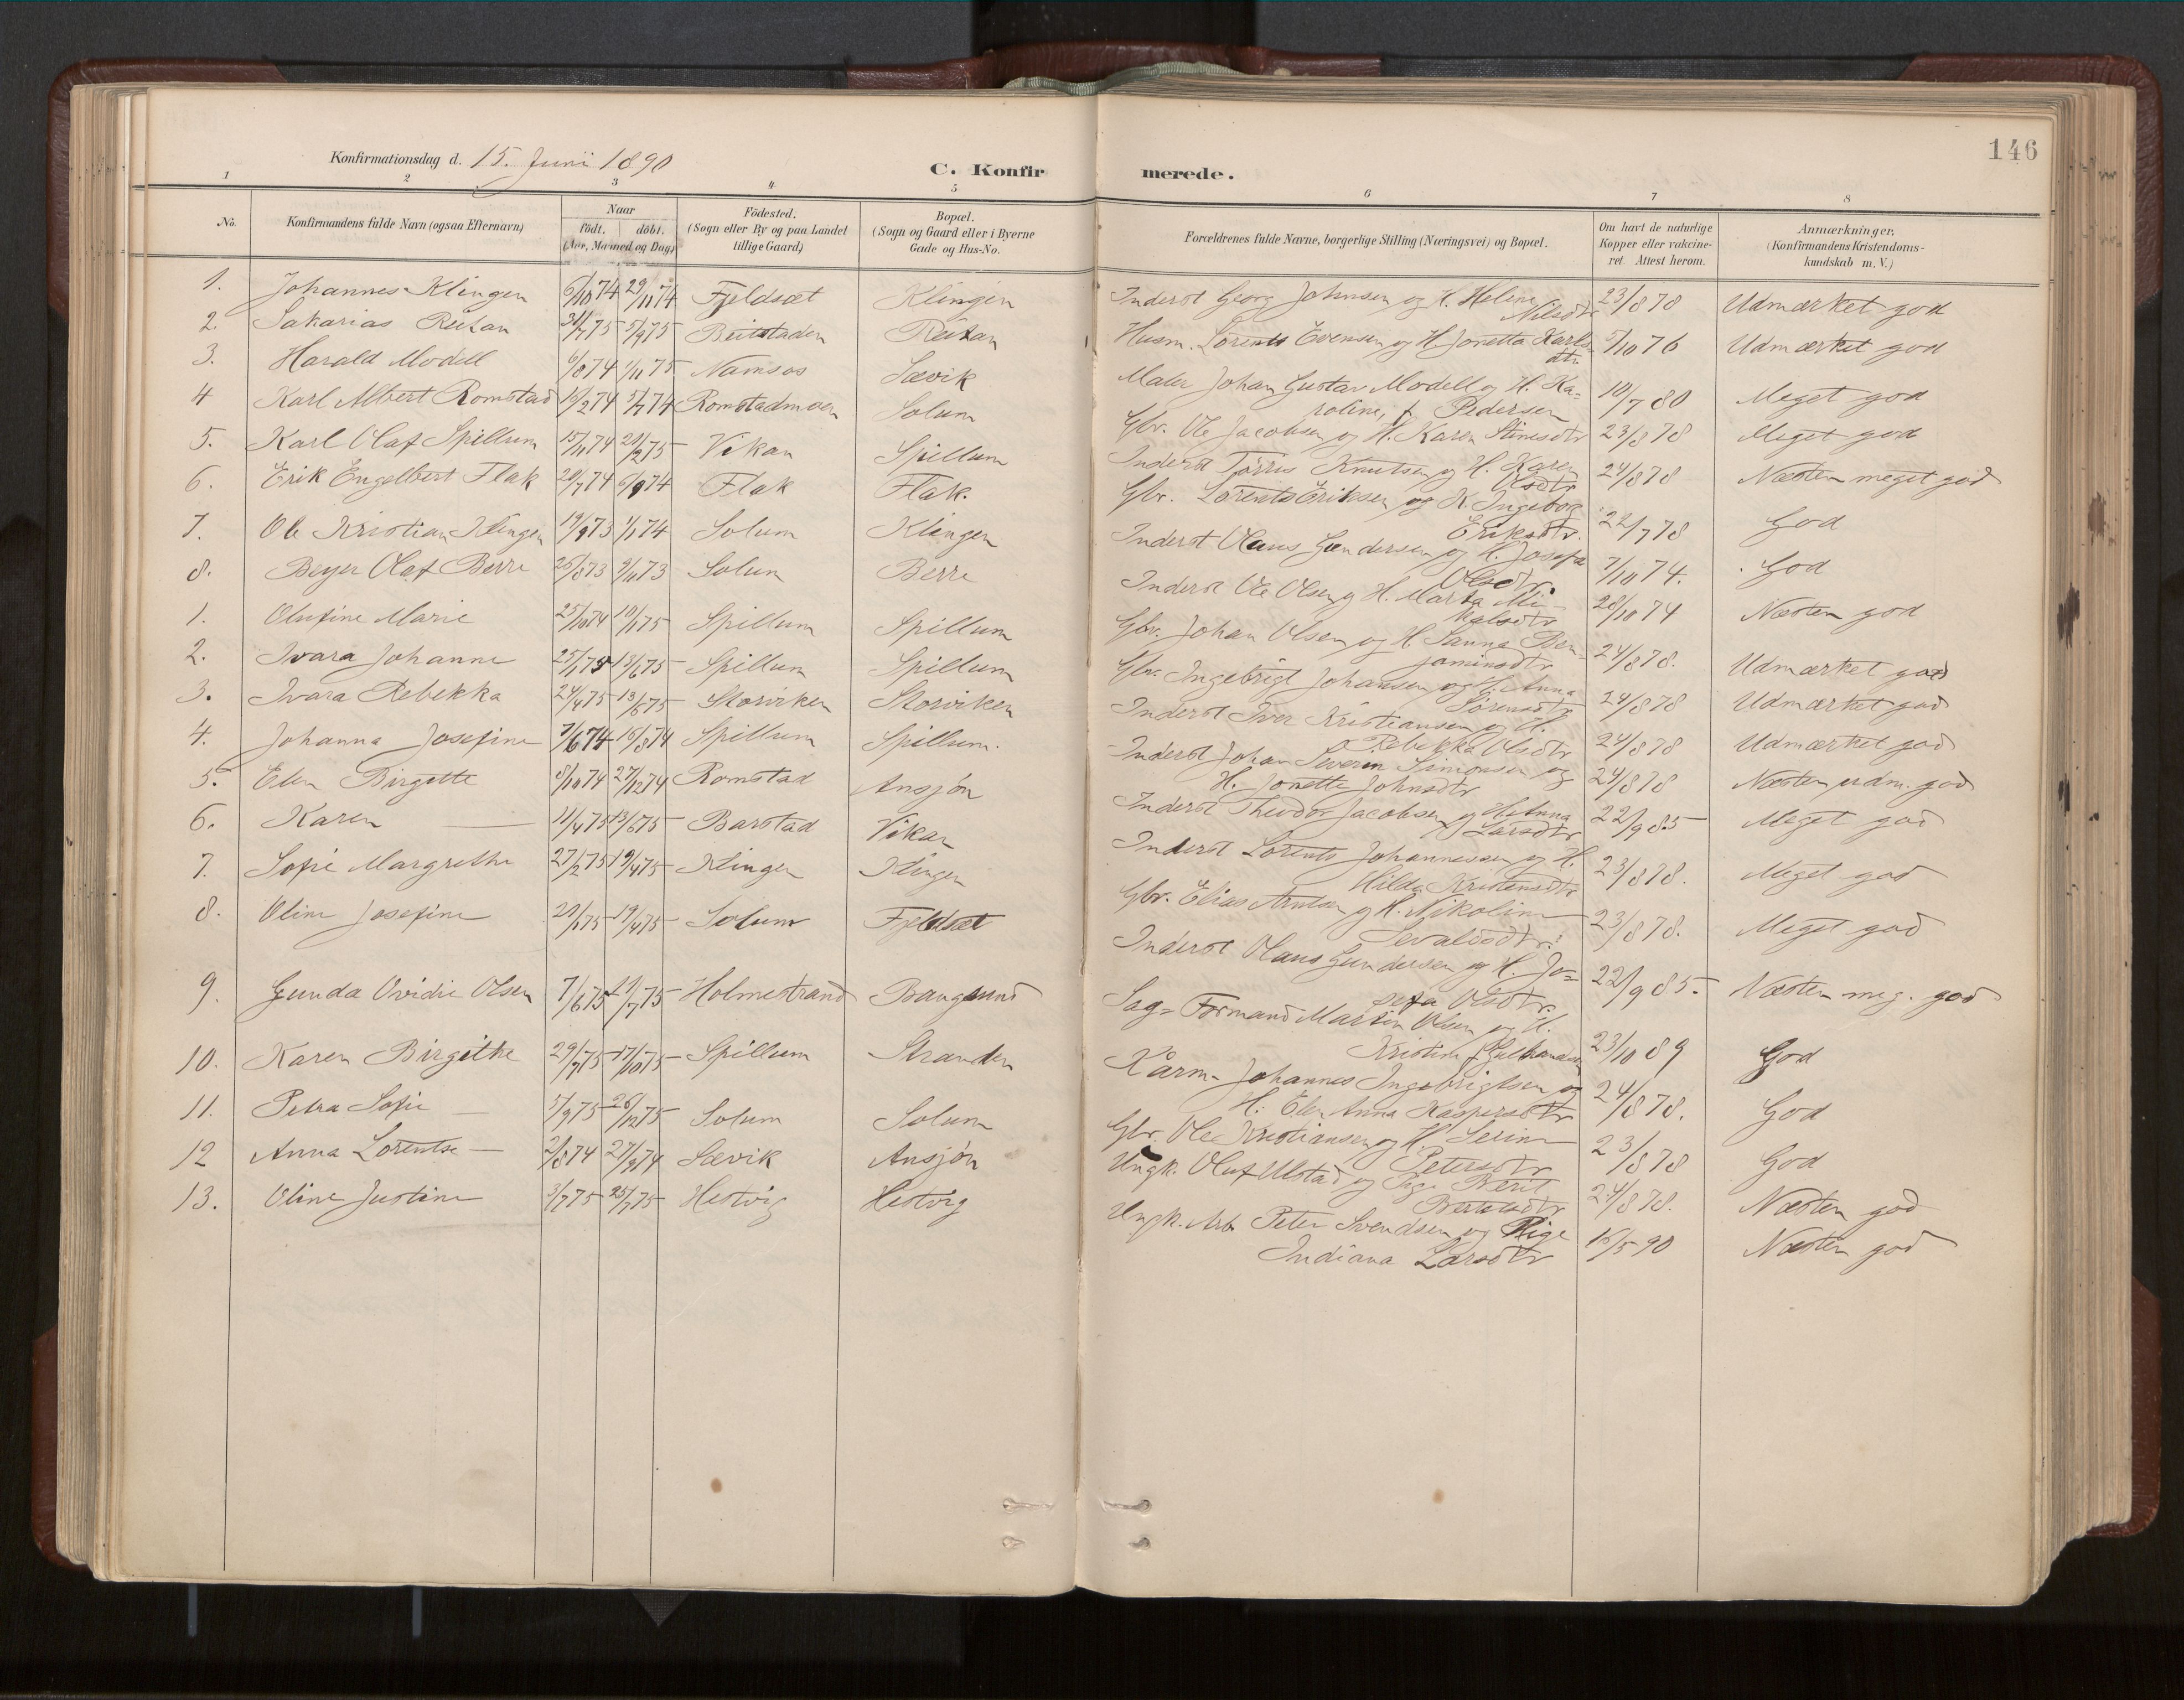 146
Konfirmationsdag d. 15. Juni 1890
C. Konfirmerede.
1 2 3 4 5 6 7 8
No. Konfirmandens fulde Navn (ogsaa Efternavn) Naar födt. döbt. (Aar, Maaned og Dag) Födested. (Sogn eller By og paa Landet tillige Gaard) Bopæl. (Sogn og Gaard eller i Byerne Gade og Hus-No. Forældrenes fulde Navne, borgerlige Stilling (Næringsvei) og Bopæl. Om havt de naturlige Kopper eller vakcineret. Attest herom. Anmærkninger. (Konfirmandens Kristendomskundskab m. V.)
1. Johannes Klingen 6/10 74 29/11 74 Fjeldsæt Klingen Inderst Georg Johnsen og H. Helene Nilsdtr 23/8 78 Udmærket god
2. Sakarias Reitan 31/7 75 5/9 75 Beitstaden Reitan Husm. Lorents Evensen og H. Jonetta Karlsdtr. 5/10 76 Udmærket god
3. Harald Modell 6/8 74 1/11 75 Namsos Sævik Maler Johan Gustav Modell og H. Karoline, f. Pedersen 10/7 80 Meget god
4 Karl Albert Romstad 16/2 74 5/7 74 Romstadmoen Solum Gbr. Ole Jacobsen og H. Karen Stinesdtr 23/8 78 Meget god
5. Karl Olaf Spillum 15/11 74 21/2 75 Vikan Spillum Inderst Törris Knutsen og H. Karen Olsdtr 24/8 78 Næsten meget god
6. Erik Engelbert Flak 20/7 74 6/9 74 Flak Flak. Gbr. Lorents Eriksen og H. Ingeborg Eriksdtr. 22/7 78 God
7. Ole Kristian Klingen 19/9 73 1/1 74 Solum Klingen Inderst Olaus Gundersen og H. Josefa Olsdtr. 7/10 74. God
8. Beyer Olaf Berre 26/8 73 9/11 73 Solum Berre Inderst Ole Olsen og H. Marta Mikalsdtr 28/10 74 Næsten god
1. Olufine Marie 25/10 74 10/1 75 Spillum Spillum Gbr. Johan Olsen og H. Sanna Benjaminsdtr 24/8 78. Udmærket god
2. Ivara Johanne 25/1 75 13/6 75 Spillum Spillum Gbr. Ingebrigt Johansen og H. Anna Sörensdtr 24/8 78 Udmærket god
3. Ivara Rebekka 24/4 75 13/6 75 Storviken Storviken Inderst Iver Kristiansen og H. Rebekka Olsdtr 24/8 78 Udmærket god
4. Johanna Josefine 7/6 74 16/8 74 Spillum Spillum. Inderst Johan Severin Simonsen og H. Jonette Johnsdtr 24/8 78 Næsten udm. god
5. Elen Birgitte 8/10 74 27/12 74 Romstad Ansjön Inderst Theodor Jacobsen og H. Anna Larsdtr 22/9 85 Meget god
6. Karen 11/4 75 13/6 75 Barstad Vikan Inderst Lorents Johannessen og H. Hilda Kristensdtr 23/8 78. Meget god
7. Sofie Margrethe 27/2 75 19/4 75 Klingen Klingen Gbr. Elias Arntsen og H. Nikoline Sevaldsdtr. 23/8 78. Meget god
8. Oline Josefine 20/1 75 19/4 75 Solum Fjeldsæt Inderst Olaus Gundersen og H. Josefa Olsdtr. 22/9 85. Næsten meg. god
9. Gunda Ovidie Olsen 7/6 75 11/7 75 Holmestrand Bangsund Sag-Formand Martin Olsen og H. Kristine f. 23/10 89 God
10. Karen Birgithe 29/9 75 17/10 75 Spillum Stranden Kårm. Johannes Ingebrigtsen og H. Elen Anna Kaspersdtr 24/8 78. God
11. Petra Sofie 5/9 75 26/12 75 Solum Solum Gbr. Ole Kristiansen og H. Serine Petersdtr 23/8 78 God
12 Anna Lorentse 2/8 74 27/9 74 Sævik Ansjön Ungk. Oluf Ulstad og Pige Berit 24/8 78. Næsten god
13. Oline Justine 3/7 75 25/7 75 Hestvig Hestvig Ungk. Arb. Peter Svendsen og Pige Indiana Larsdtr 16/5 90 Næsten god